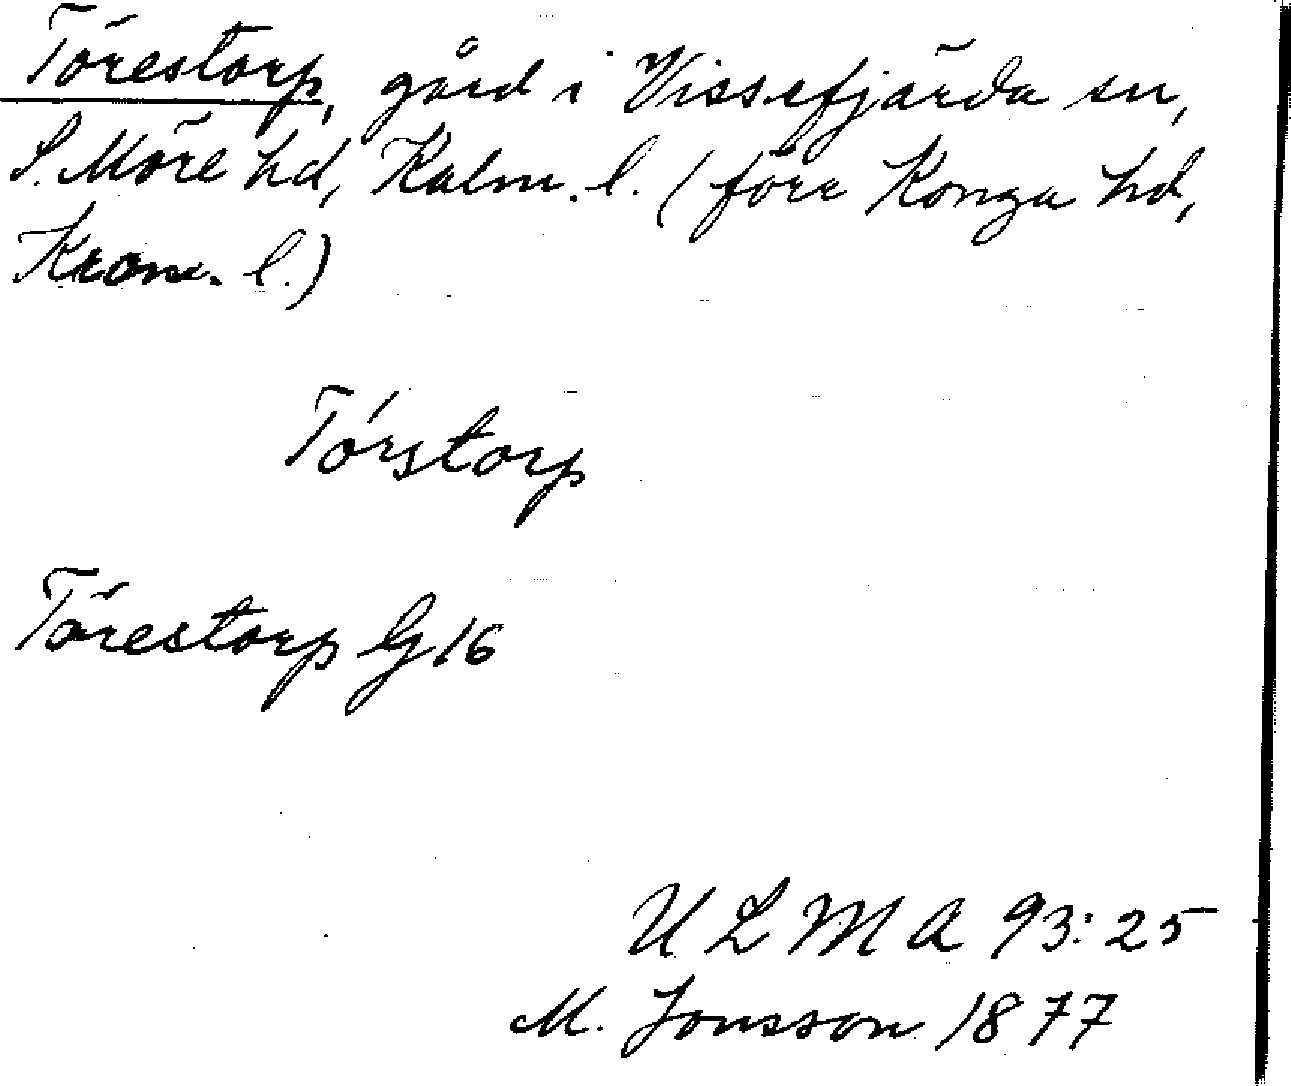 Törestorp, gård i Vissefjärda sn,
S. Möre hd, Kalm. l. (förr Konga hd,
Kron. l.)
Tórstorp
Törestorp G 16
ULMA 93:25
M. Jonsson 1877